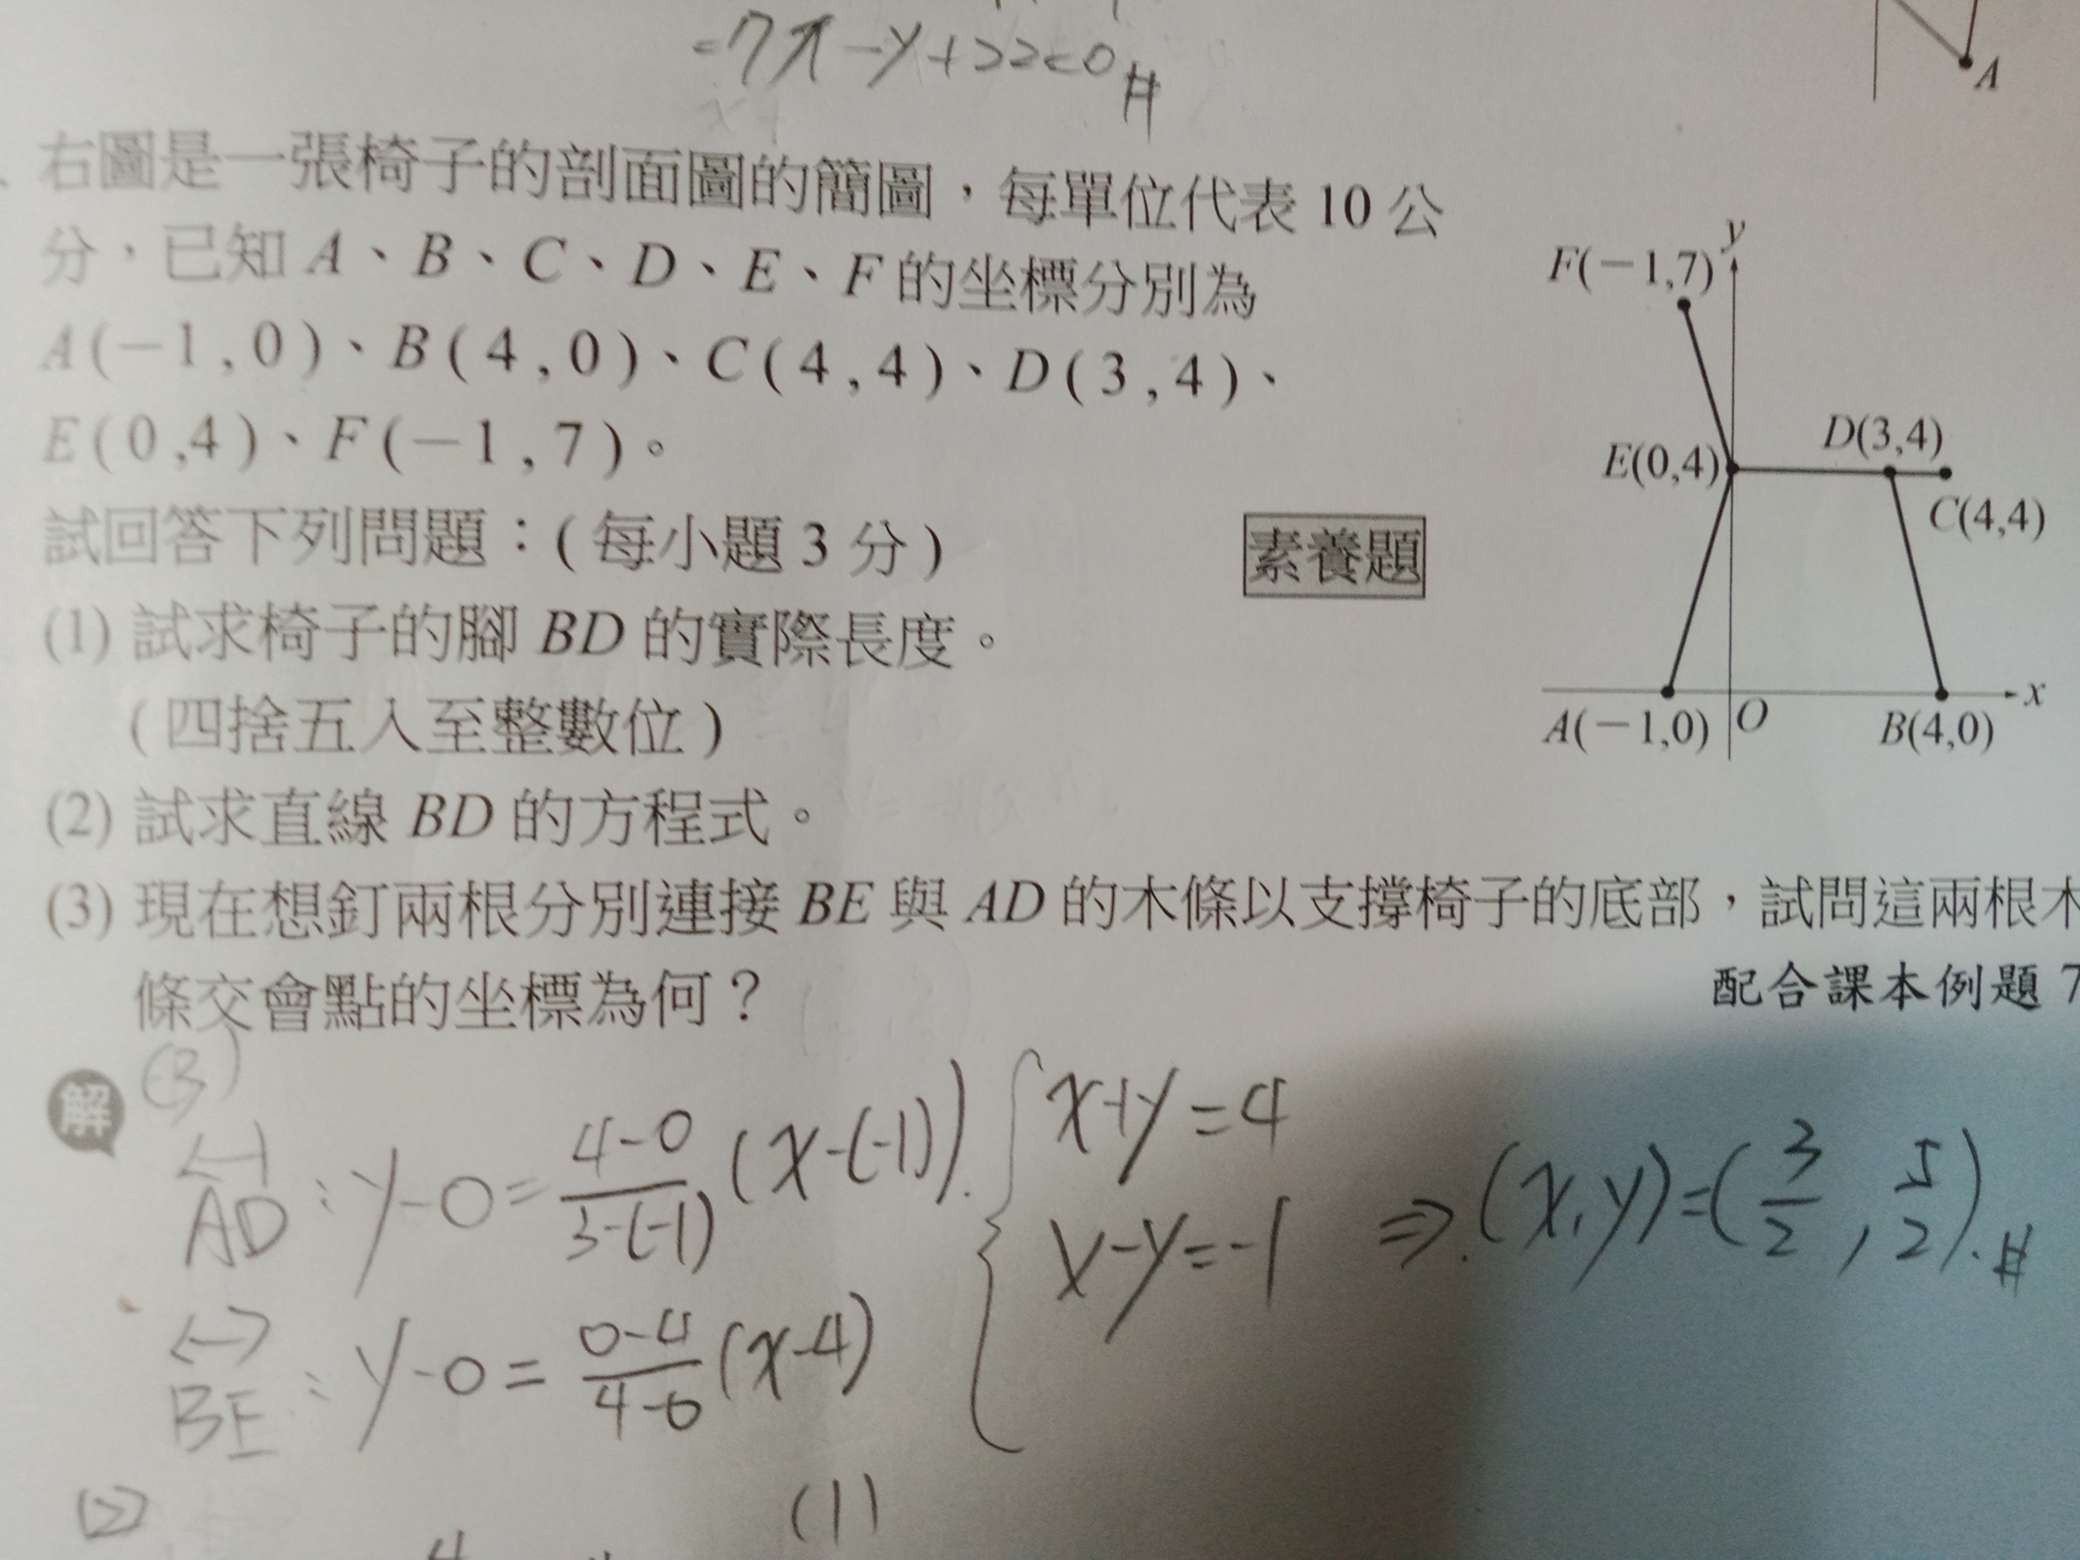 =7x-y+22=0 #
A
右圖是一張椅子的剖面圖的簡圖，每單位代表 10 公
分，已知 A、B、C、D、E、F 的坐標分別為
A(−1,0)、B(4,0)、C(4,4)、D(3,4)、
E(0,4)、F(−1,7)。
試回答下列問題：(每小題 3 分)
素養題
(1) 試求椅子的腳 BD 的實際長度。
(四捨五入至整數位)
(2) 試求直線 BD 的方程式。
(3) 現在想釘兩根分別連接 BE 與 AD 的木條以支撐椅子的底部，試問這兩根木
條交會點的坐標為何？
配合課本例題 7
y
F(−1,7)
D(3,4)
E(0,4)
C(4,4)
x
A(−1,0)
O
B(4,0)
解
(3)
AD : y-0 = 4-0/3-(-1) (x-(-1)).
BE : y-0 = 0-4/4-0 (x-4)
x+y=4
x-y=-1
⇒ (x,y)=(3/2, 5/2). #
(2)
(1)
4